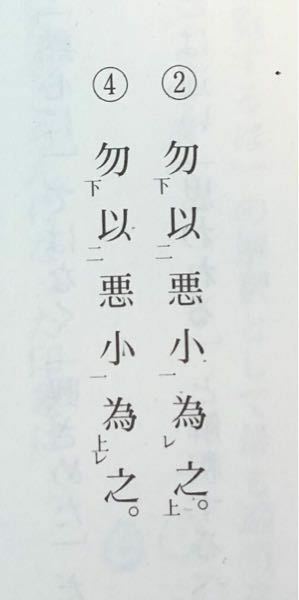 ② 勿下以二悪小一為レ之上。
④ 勿下以二悪小一為上レ之。